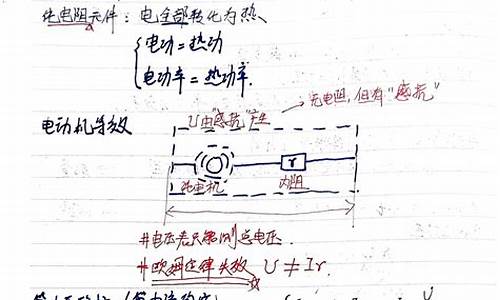 纯电阻元件：电全部转化为热、
电功=热功
电功率=热功率.
无电阻，但有"感抗"
电动机等效
U由"感抗"产生
r
纯电机 内阻
#电压表只能测总电压.
#欧姆定律失效 U≠Ir.